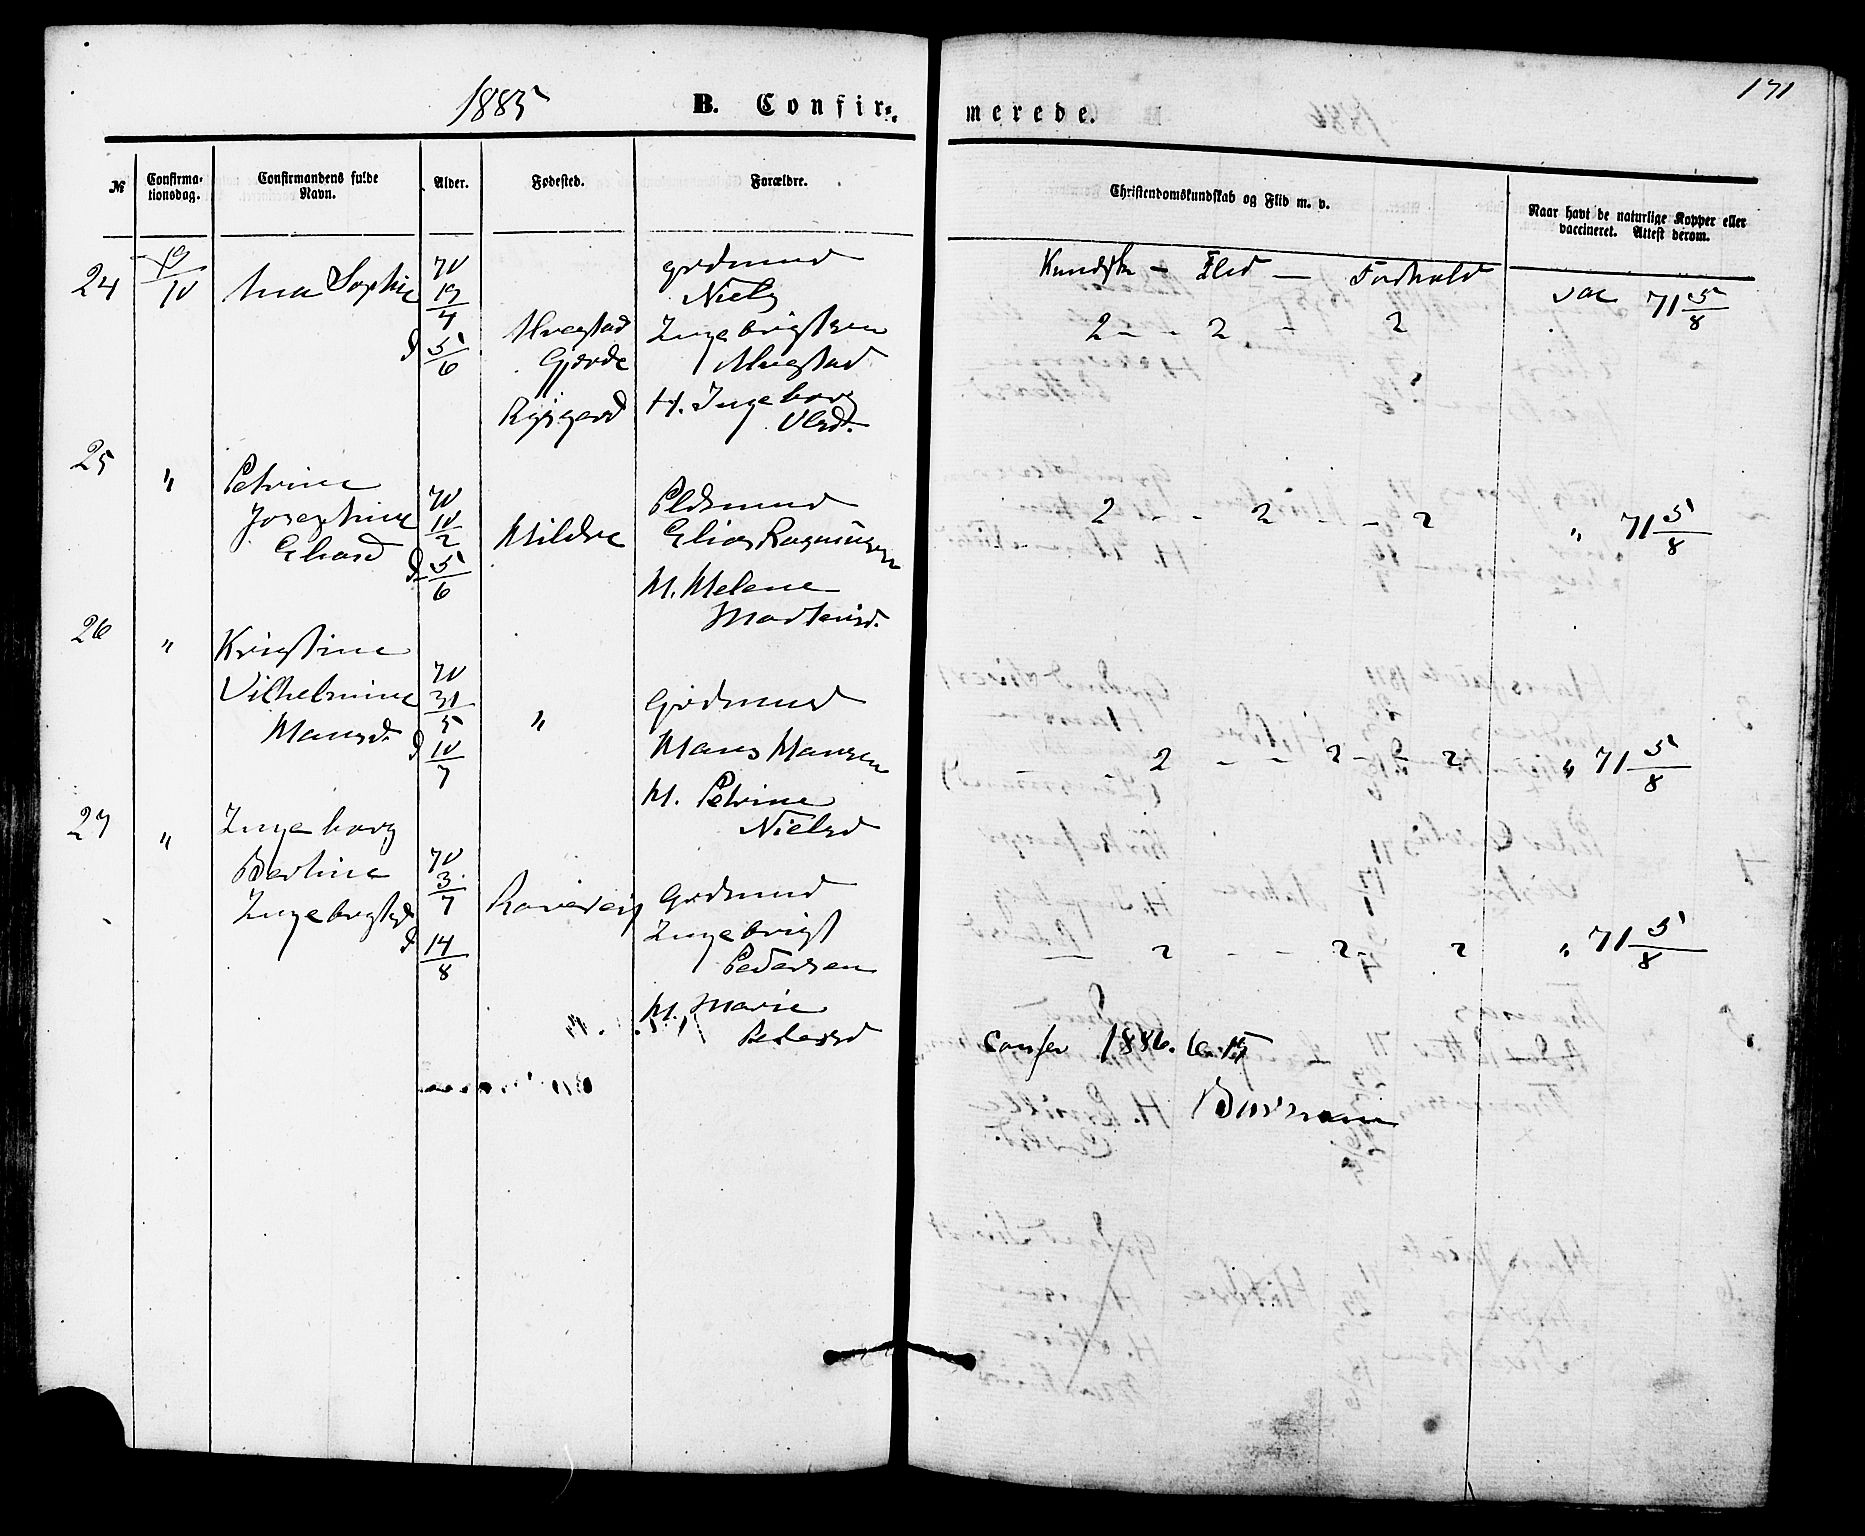 1885
B. Confir-
merede.
171
№
Confirma-
tionsdag.
Confirmandens fulde
Navn.
Alder.
Fødested.
Forældre.
Christendomskundskab og Flid m. v.
Naar havt de naturlige Kopper eller
vaccineret. Attest derom.
24
Ana Sophie
70
19/4
d 5/6
Gjerde
Grdmand
Niels
Ingebrigtsen
H. Ingeborg
Olsd.
Kundsk - Flid - Forhold
2 - - 2 - 2
vac 71 5/8
25
"
Petrine
Josephine
Eliasd
70
10/2
d 5/6
Mildre
Pldsmand
Elias Rasmusen
M. Helene
Mortensd.
2 - - 2 - - 2
" 71 5/8
26
"
Kristine
Vilhelmine
Hansd.
70
31/5
d 10/7
"
Grdmand
Hans Hansen
M. Petrine
Nielsd
2 - - 2 - 2
" 71 5/8
27
"
Ingeborg
Bertine
Ingebrigtsd
70
3/7
d 14/8
Grdmand
Ingebrigt
Pedersen
M. Marie
Pedersd
2 - - 2 2
" 71 5/8
1886.